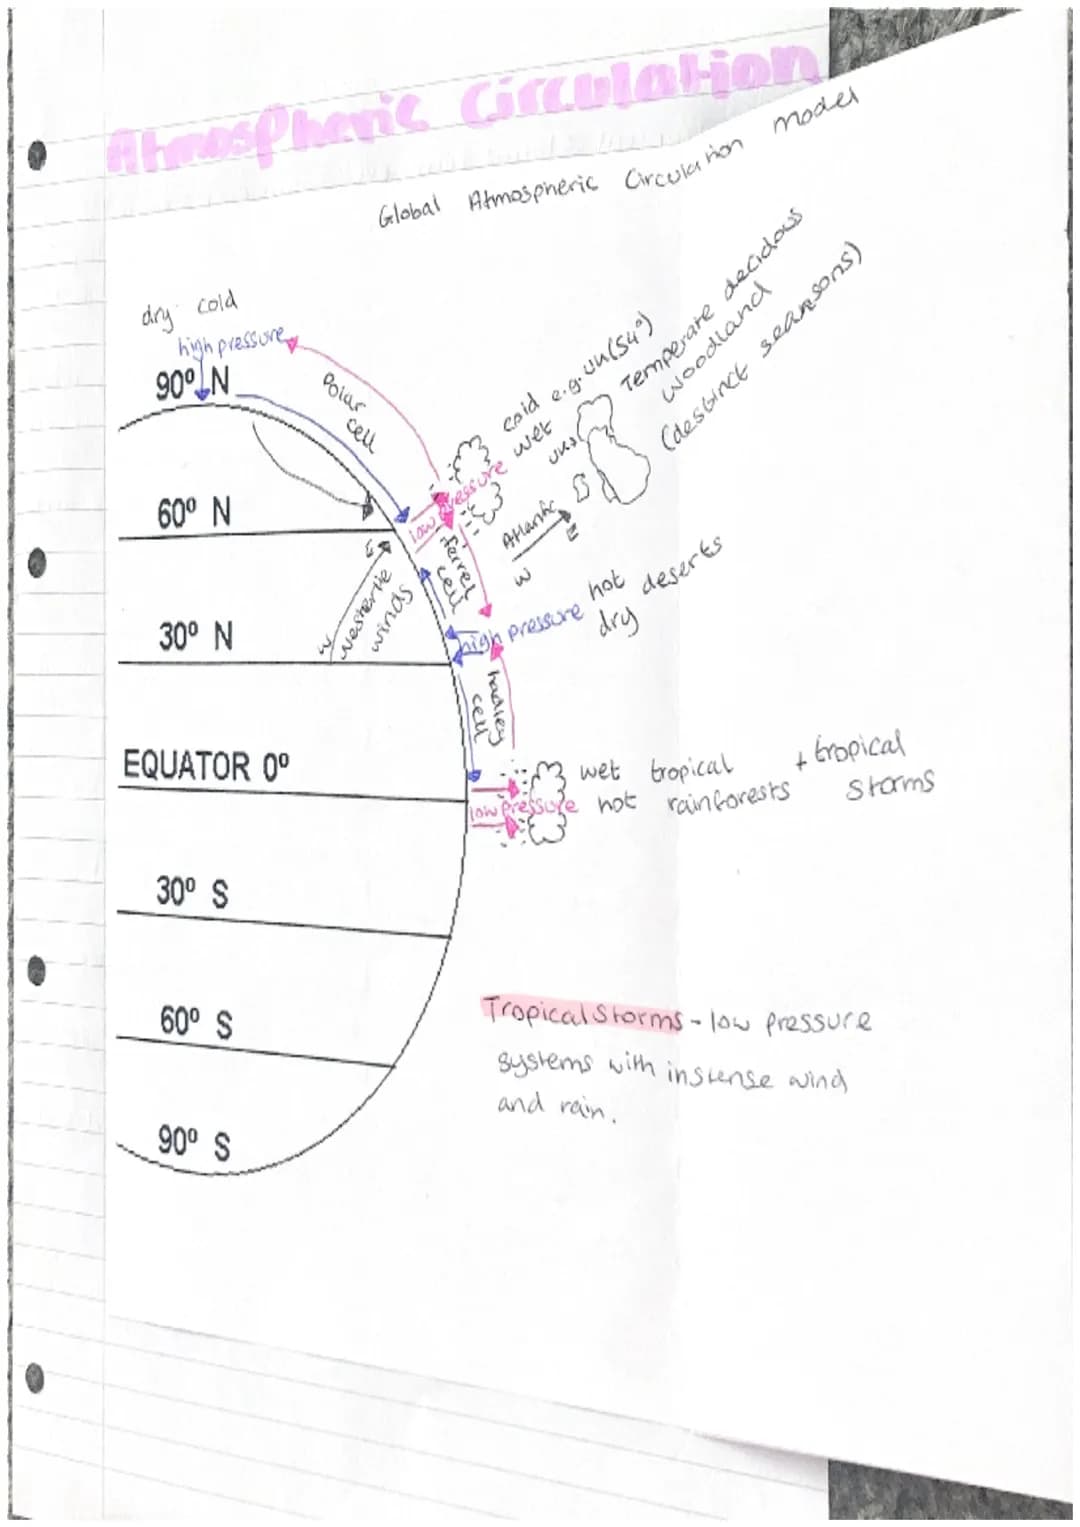 Atmospheric Circulation
Global Atmospheric Circulation model
dry cold
high pressure
90° N
Polar
cell
60° N
low pressure
cold e.g. UK (54°)
wet
UK
Temperate decidows
woodland
(destinct searsons)
Atlantic
W
E
ferrel
cell
E
westerlie
winds
W
30° N
high pressure
hot deserts
dry
hadley
cell
EQUATOR 0°
low pressure
wet tropical + tropical
hot rainforests storms
30° S
60° S
90° S
Tropical Storms - low pressure
systems with instense wind
and rain.